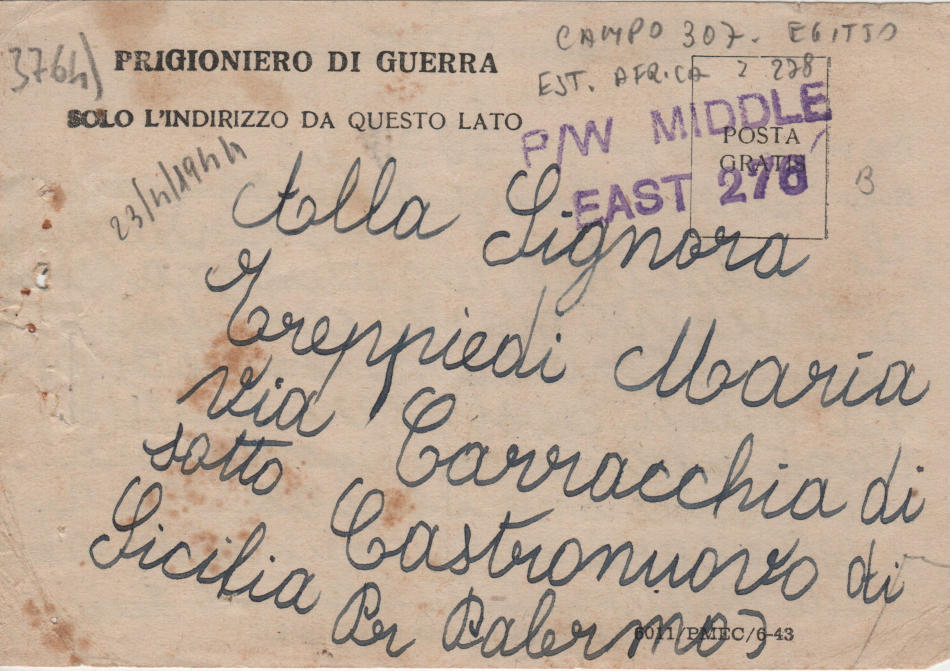 CAMPO 307. EGITTO
EST. AFRICA 2 278
3764)
PRIGIONIERO DI GUERRA
SOLO L'INDIRIZZO DA QUESTO LATO
P/W MIDDLE
EAST 276
POSTA
GRATIS
B
23/4/1944
Alla Signora
Treppiedi Maria
Via Carracchia di
sotto
Castronuovo di
Sicilia
Per Palermo
6011/PMEC/6-43